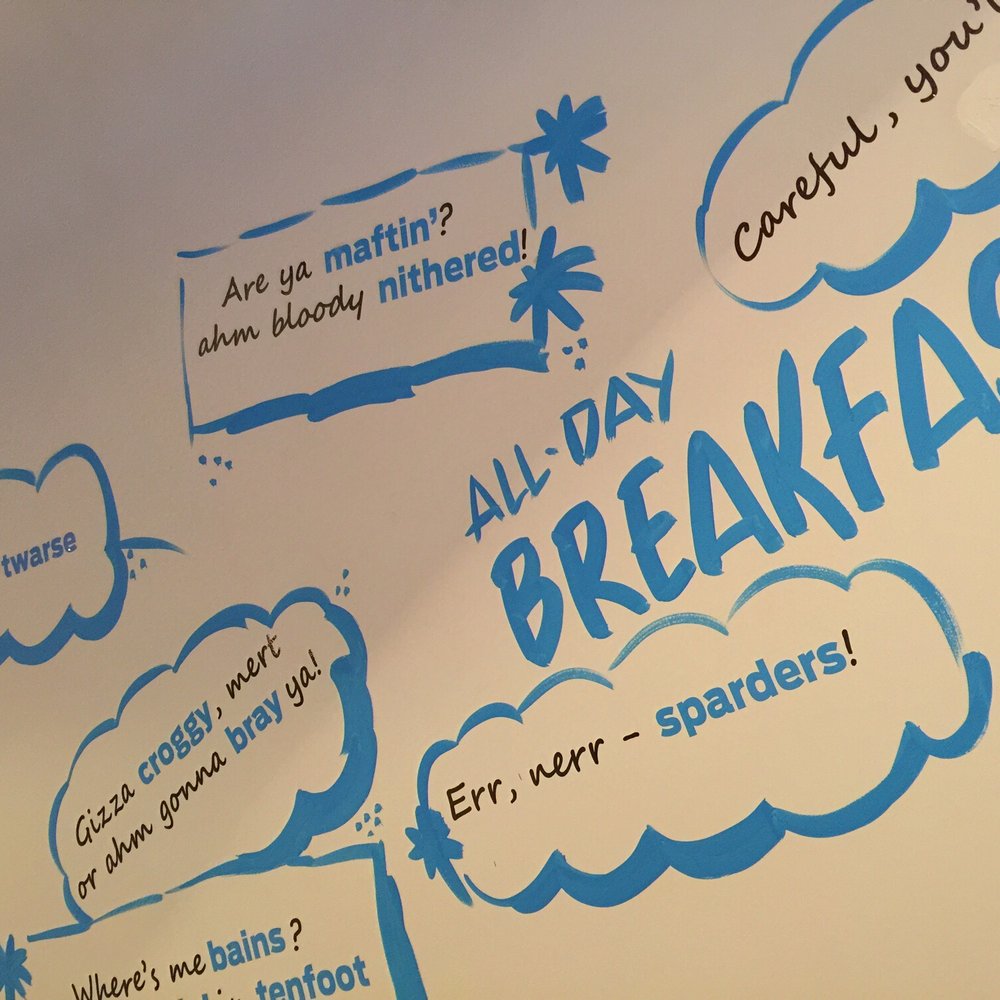 Careful, you'
Are ya maftin'?
ahm bloody nithered!
ALL-DAY
BREAKFAS
twarse
Gizza croggy, mert
or ahm gonna bray ya!
Err, nerr - sparders!
Where's me bains?
tenfoot